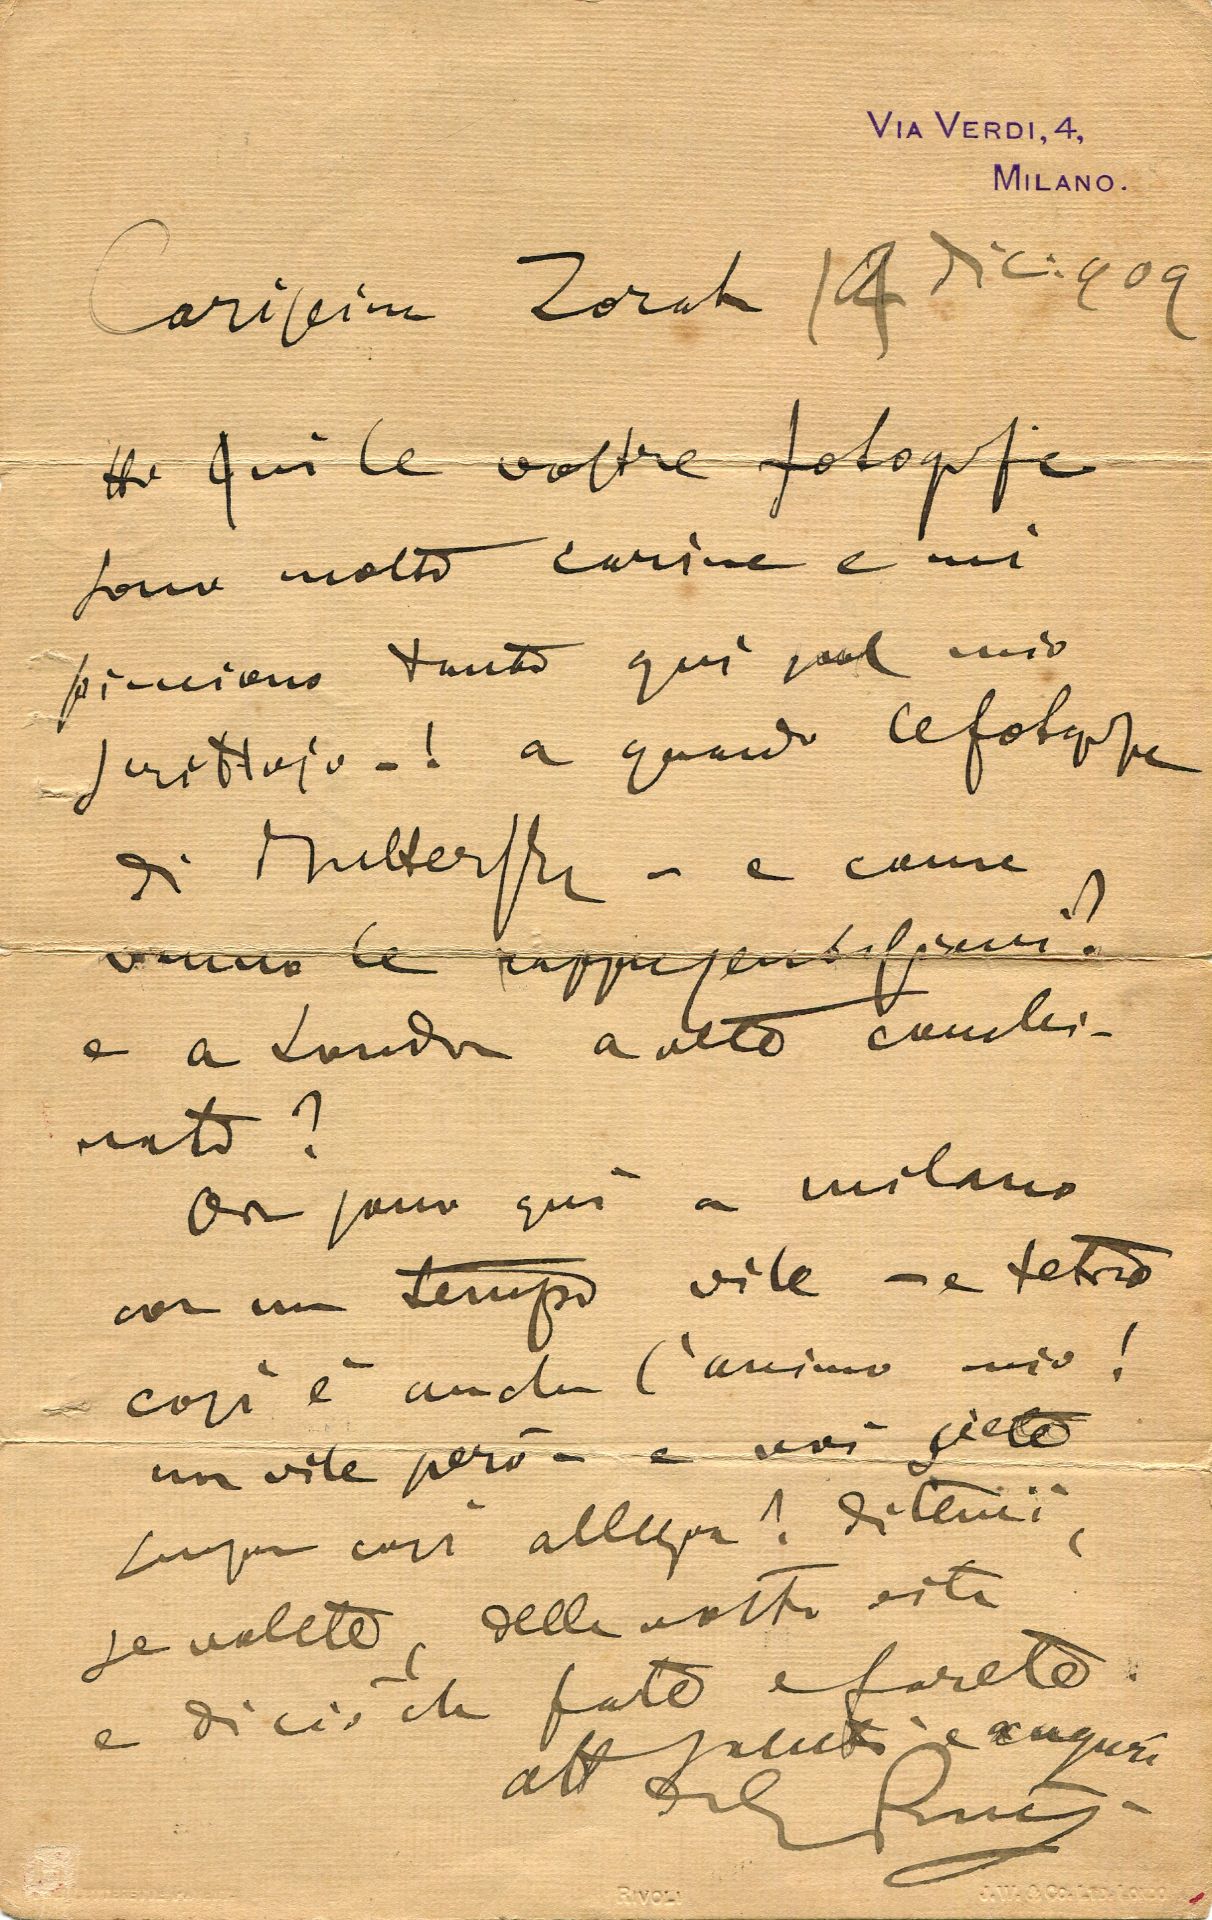 VIA VERDI, 4,
MILANO.
Carissima Zorah 14 dic. 909
Ho qui le vostre fotografie
sono molto carine e mi
piacciono tanto qui sul mio
scrittojo - ! a quando le fotografie
di Butterfly - e come
vanno le rappresentazioni?
e a Londra avete combi-
nato?
Ora sono qui a Milano
con un tempo vile - e tetro
così è anche l'animo mio!
non vile però - e voi siete
sempre così allegra? ditemi,
se volete, della vostra vita
e di ciò che fate e farete.
aff saluti e auguri
dal Puccini
RIVOLI
J.W. & CO. LTD. LONDO